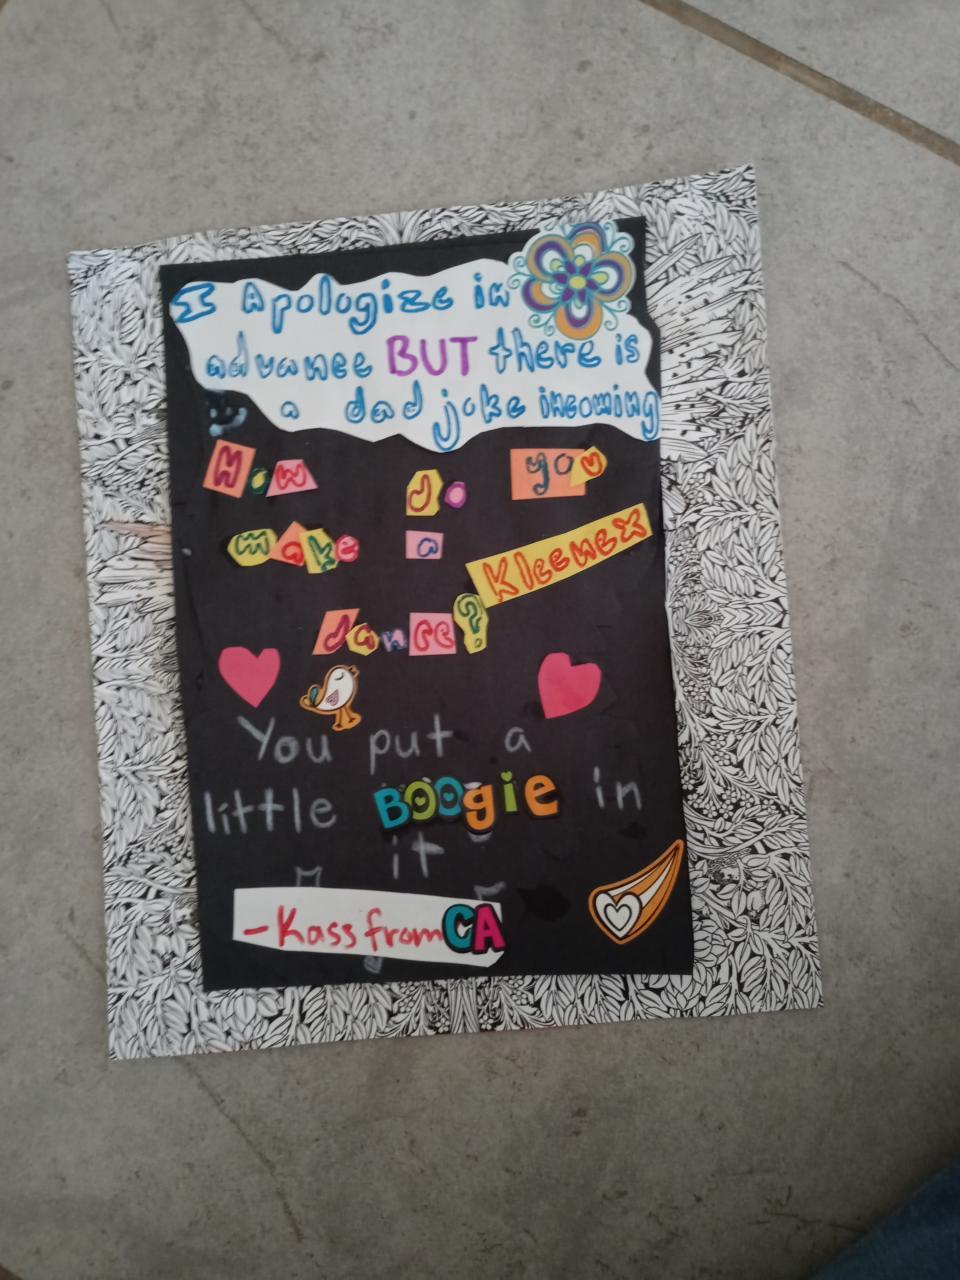 I Apologize in
advance BUT there is
a dad joke incoming
How do you
make a Kleenex
dance?
You put a
little BOOgie in
it
-Kass from CA